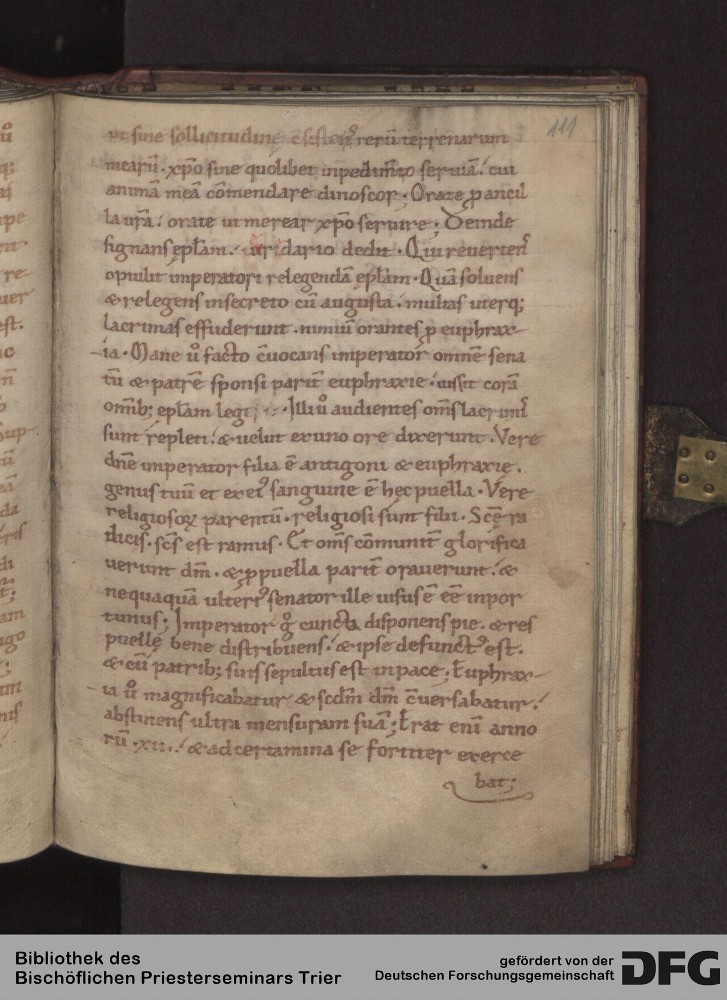 111
ut sine sollicitudine rerū terrenarum
mearū · xp̄o sine quolibet inpedimto seruiā · cui
animā meā cōmendare dinoscor · Orate ꝓ ancil
la ur̄a · orate ut merear xp̄o seruire · Deinde
signans ep̄lam · dario dedit · Qui reuerten
optulit imperatori relegendā ep̄lam · Quā soluens
& relegens insecreto cū augusta · multas uterq;
lacrimas effuderunt · nimiū orantes ꝓ euphrax-
-ia · Mane u̅ facto c̄uocans imperator omnē sena
tū & patrē sponsi parit̄ euphraxie · iussit corā
omīb; ep̄lam legi · Illi u̅ audientes om̄s lacrimis
sunt repleti · & uelut ex uno ore dixerunt · Vere
dn̄e imperator filia ē antigoni & euphraxie ·
genus tuū et ex ei᷒ sanguine ē hęc puella · Vere
religiosoꝝ parentū · religiosi sunt filii · Sc̄e ra
dicis · sc̄s est ramus · Et om̄s cōmunit̄ glorifica
uerunt dm̄ · & ꝓ puella parit̄ orauerunt · &
nequaquā ulteri᷒ senator ille uisus ē eē inpor
tunus; Imperator g̊ cuncta disponens pie · & res
puellę bene distribuens · & ipse defunct᷒ est ·
& cū patrib; suis sepultus est in pace · Euphrax-
-ia u̅ magnificabatur & scdm̄ dm̄ c̄uersabatur ·
abstinens ultra mensuram suā; Erat eni̅ anno
rū · xii · & ad certamina se fortiter exerce
bat;
Bibliothek des
Bischöflichen Priesterseminars Trier
gefördert von der
Deutschen Forschungsgemeinschaft
DFG